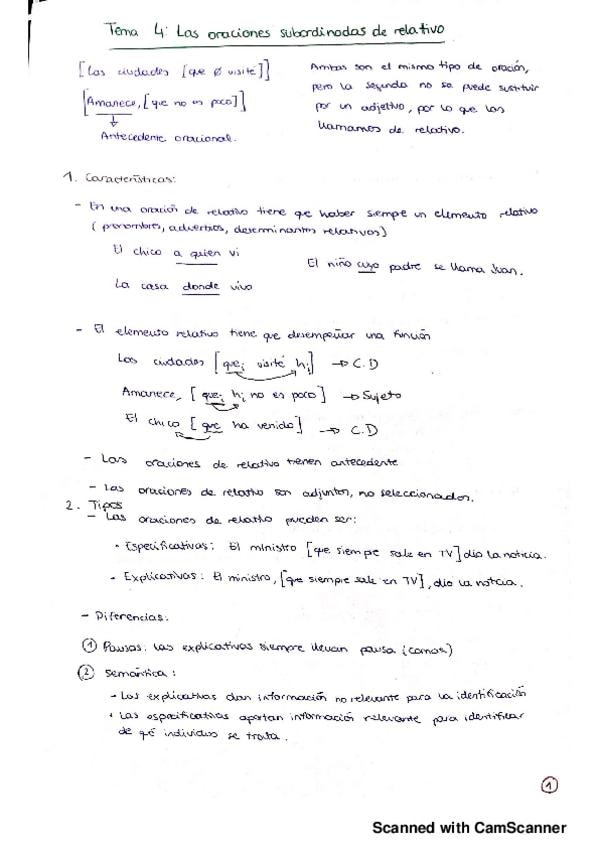 Tema 4: Las oraciones subordinadas de relativo
[Las ciudades [que Ø visité]]
[Amanece, [que no es poco]]
Antecedente oracional.
Ambas son el mismo tipo de oración,
pero la segunda no se puede sustituir
por un adjetivo, por lo que las
llamamos de relativo.
1. Características:
- En una oración de relativo tiene que haber siempre un elemento relativo
(pronombres, adverbios, determinantes relativos)
El chico a quien vi
El niño cuyo padre se llama Juan.
La casa donde vivo
- El elemento relativo tiene que desempeñar una función
Las ciudades [que_i visité h_i] → C.D
Amanece, [que_i h_i no es poco] → Sujeto
El chico [que ha venido] → C.D
- Las oraciones de relativo tienen antecedente
- Las oraciones de relativo son adjuntos, no seleccionados.
2. Tipos
- Las oraciones de relativo pueden ser:
· Especificativas: El ministro [que siempre sale en TV] dio la noticia.
· Explicativas: El ministro, [que siempre sale en TV], dio la noticia.
- Diferencias:
① Pausas: las explicativas siempre llevan pausa (comas)
② Semántica:
- Las explicativas dan información no relevante para la identificación
· Las especificativas aportan información relevante para identificar
de qé individuo se trata.
①
Scanned with CamScanner